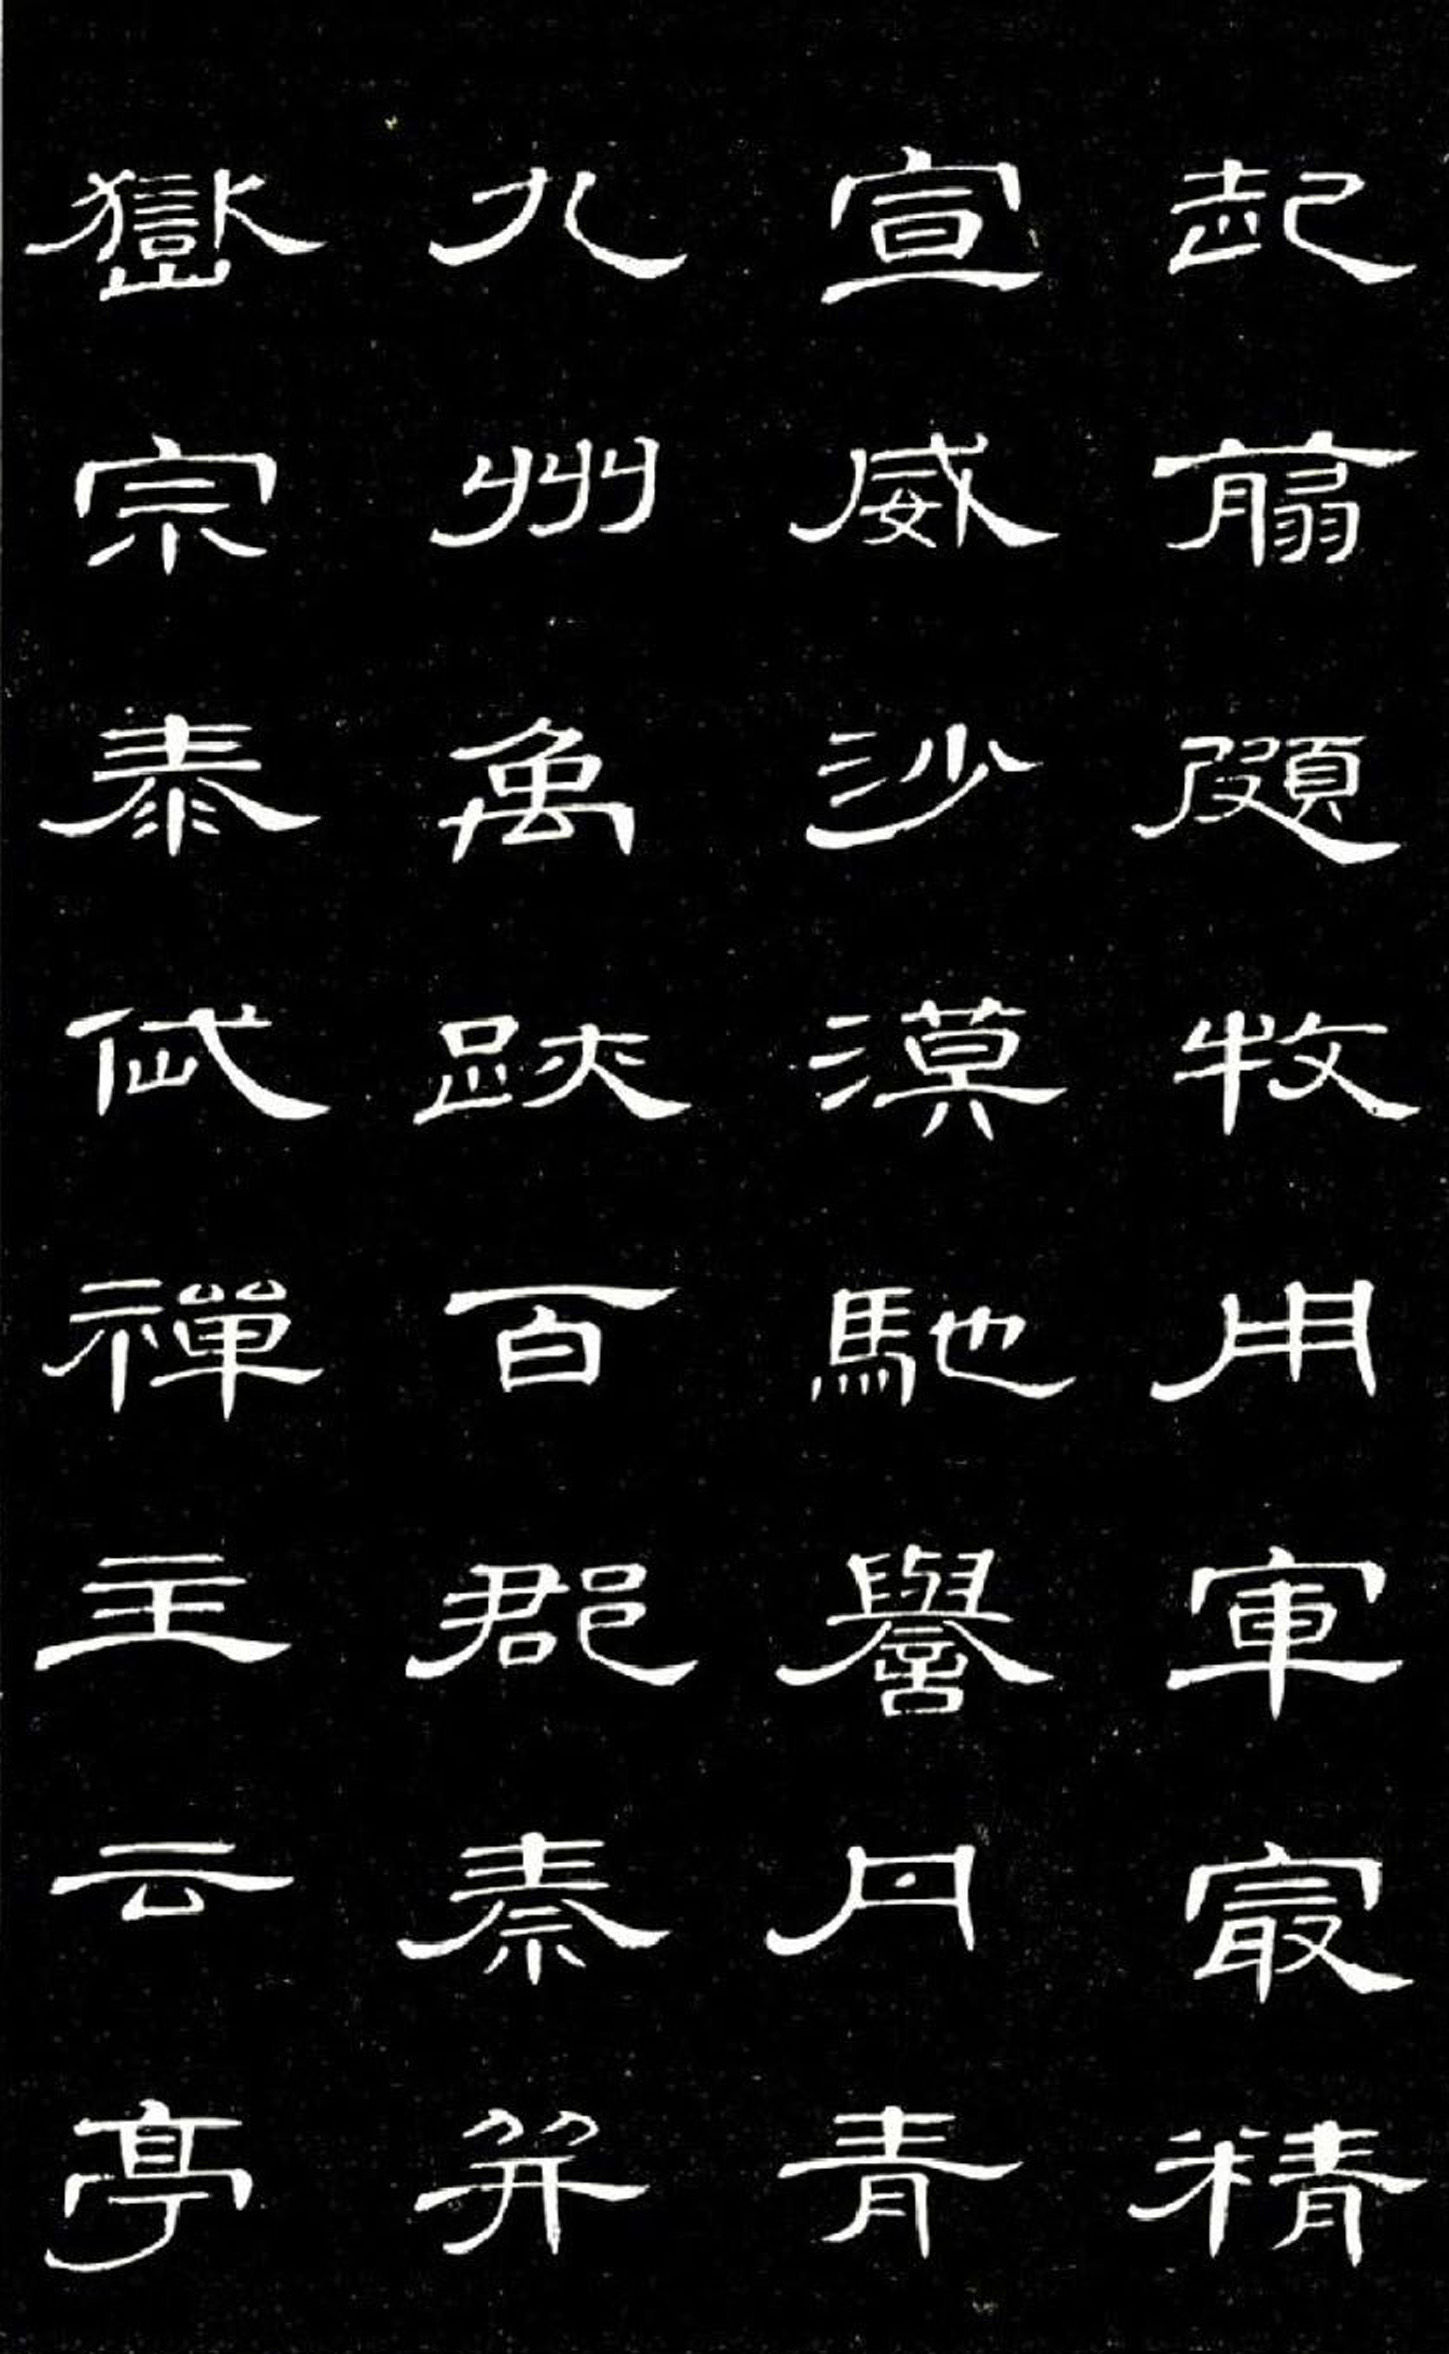 起翦頗牧用軍㝡精
宣威沙漠馳譽丹青
九州禹跡百郡秦并
嶽宗泰岱禪主云亭